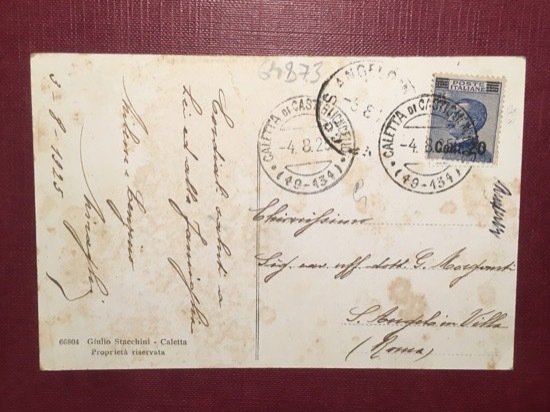 64873
3-8-1925
Cordiali saluti a
Lei ed alla famiglia
66804 Giulio Stacchini - Caletta
Proprietà riservata
CALETTA DI CASTIGLIONCELLO
-4.8.2
(49-134)
S. ANGELO
CALETTA DI CASTIGLIONCELLO
-4.8
(49-134)
POSTE
ITALIANE
Cent. 20
Chiarissimo
Sig. cav. uff. dott. G.
S. Angelo in Villa
(Roma)